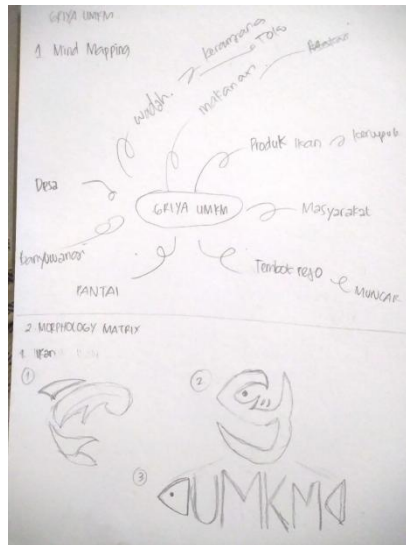 GRIYA UMKM
1 Mind Mapping
kerampanas
Toko
wadah.
makanan
Produk Ikan
kerupuk
Desa
GRIYA UMKM
Masyarakat
banyuwangi
PANTAI
Tembok rejo
MUNCAR
2. MORPHOLOGY MATRIX
1. Ikan
1
2
3
UMKM